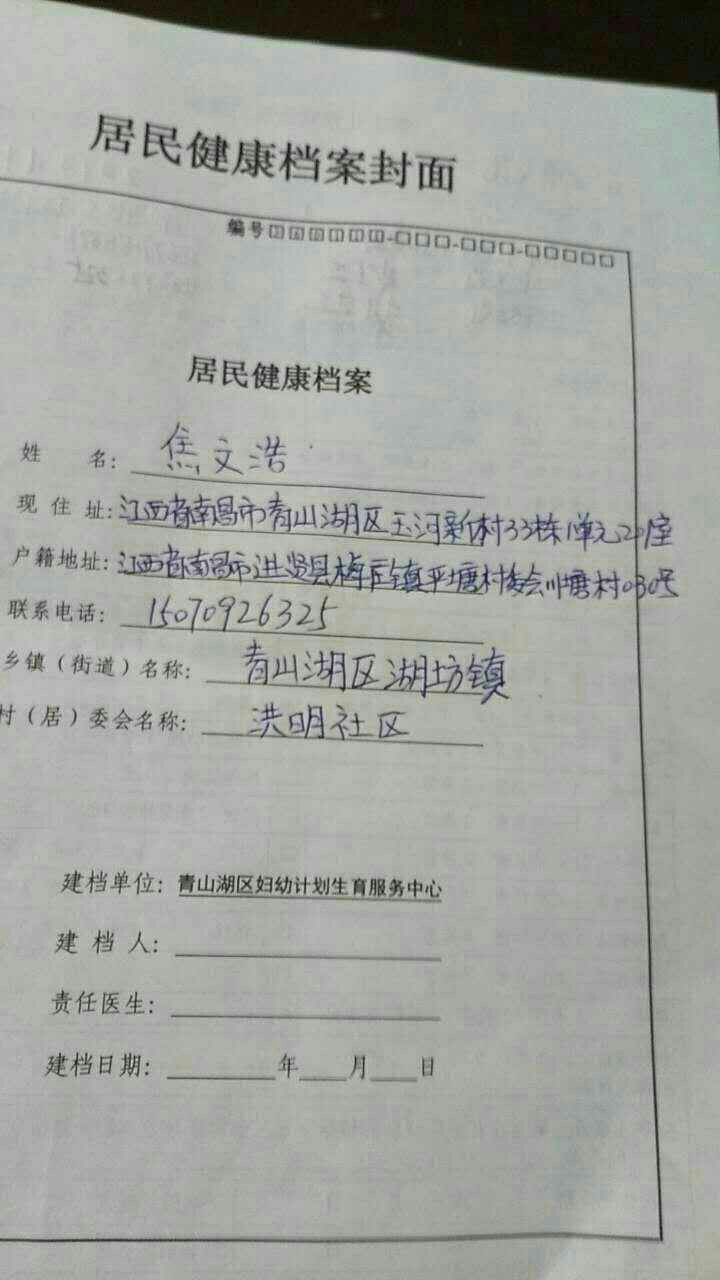 居民健康档案封面
编号□□□□□□-□□□-□□□-□□□□□
居民健康档案
姓 名: 焦文浩
现住址: 江西省南昌市青山湖区玉河新村33栋1单元201室
户籍地址: 江西省南昌市进贤县梅庄镇平塘村委会川塘村030号
联系电话: 15070926325
乡镇(街道)名称: 青山湖区湖坊镇
村(居)委会名称: 洪明社区
建档单位: 青山湖区妇幼计划生育服务中心
建 档 人:
责任医生:
建档日期: 年 月 日